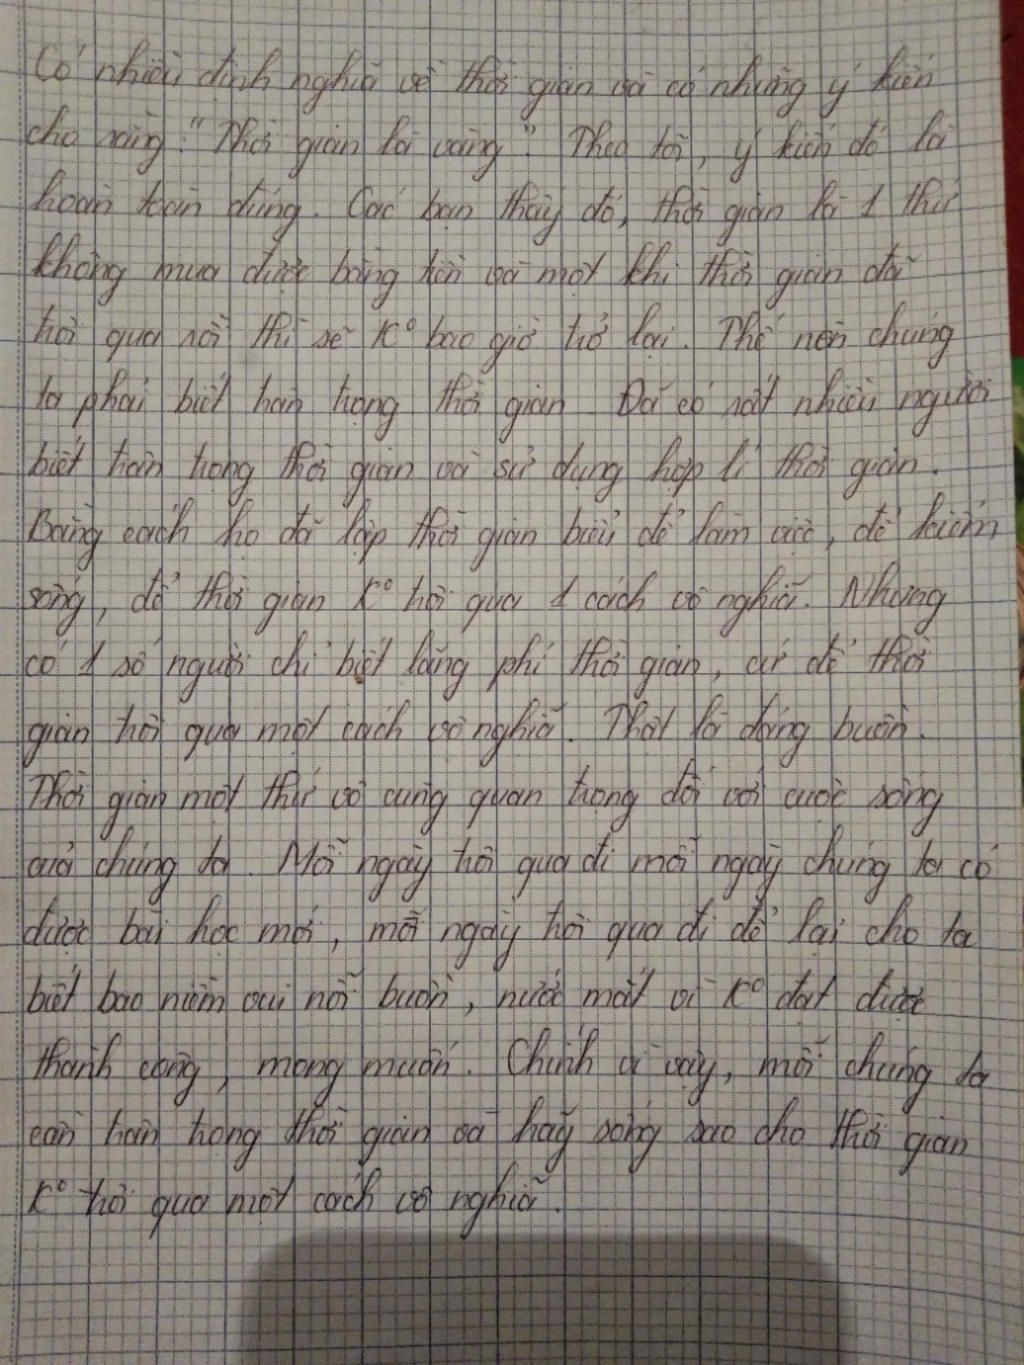 Có nhiều định nghĩa về thời gian và có những ý kiến
cho rằng: "Thời gian là vàng". Theo tôi, ý kiến đó là
hoàn toàn đúng. Các bạn thấy đó, thời gian là 1 thứ
không mua được bằng tiền và một khi thời gian đã
trôi qua rồi thì sẽ K° bao giờ trở lại. Thế nên chúng
ta phải biết trân trọng thời gian. Đã có rất nhiều người
biết trân trọng thời gian và sử dụng hợp lí thời gian.
Bằng cách họ đã lập thời gian biểu để làm việc, để kiếm
sống, để thời gian K° trôi qua 1 cách vô nghĩa. Nhưng
có 1 số người chỉ biết lãng phí thời gian, cứ để thời
gian trôi qua một cách vô nghĩa. Thật là đáng buồn.
Thời gian một thứ vô cùng quan trọng đối với cuộc sống
của chúng ta. Mỗi ngày trôi qua đi mỗi ngày chúng ta có
được bài học mới, mỗi ngày trôi qua đi để lại cho ta
biết bao niềm vui nỗi buồn, nước mắt vì K° đạt được
thành công, mong muốn. Chính vì vậy, mỗi chúng ta
cần trân trọng thời gian và hãy sống sao cho thời gian
K° trôi qua một cách vô nghĩa.